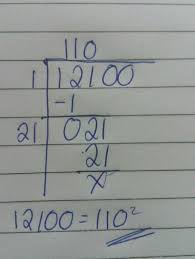 110
1 12100
-1
21 021
21
x
12100 = 110²